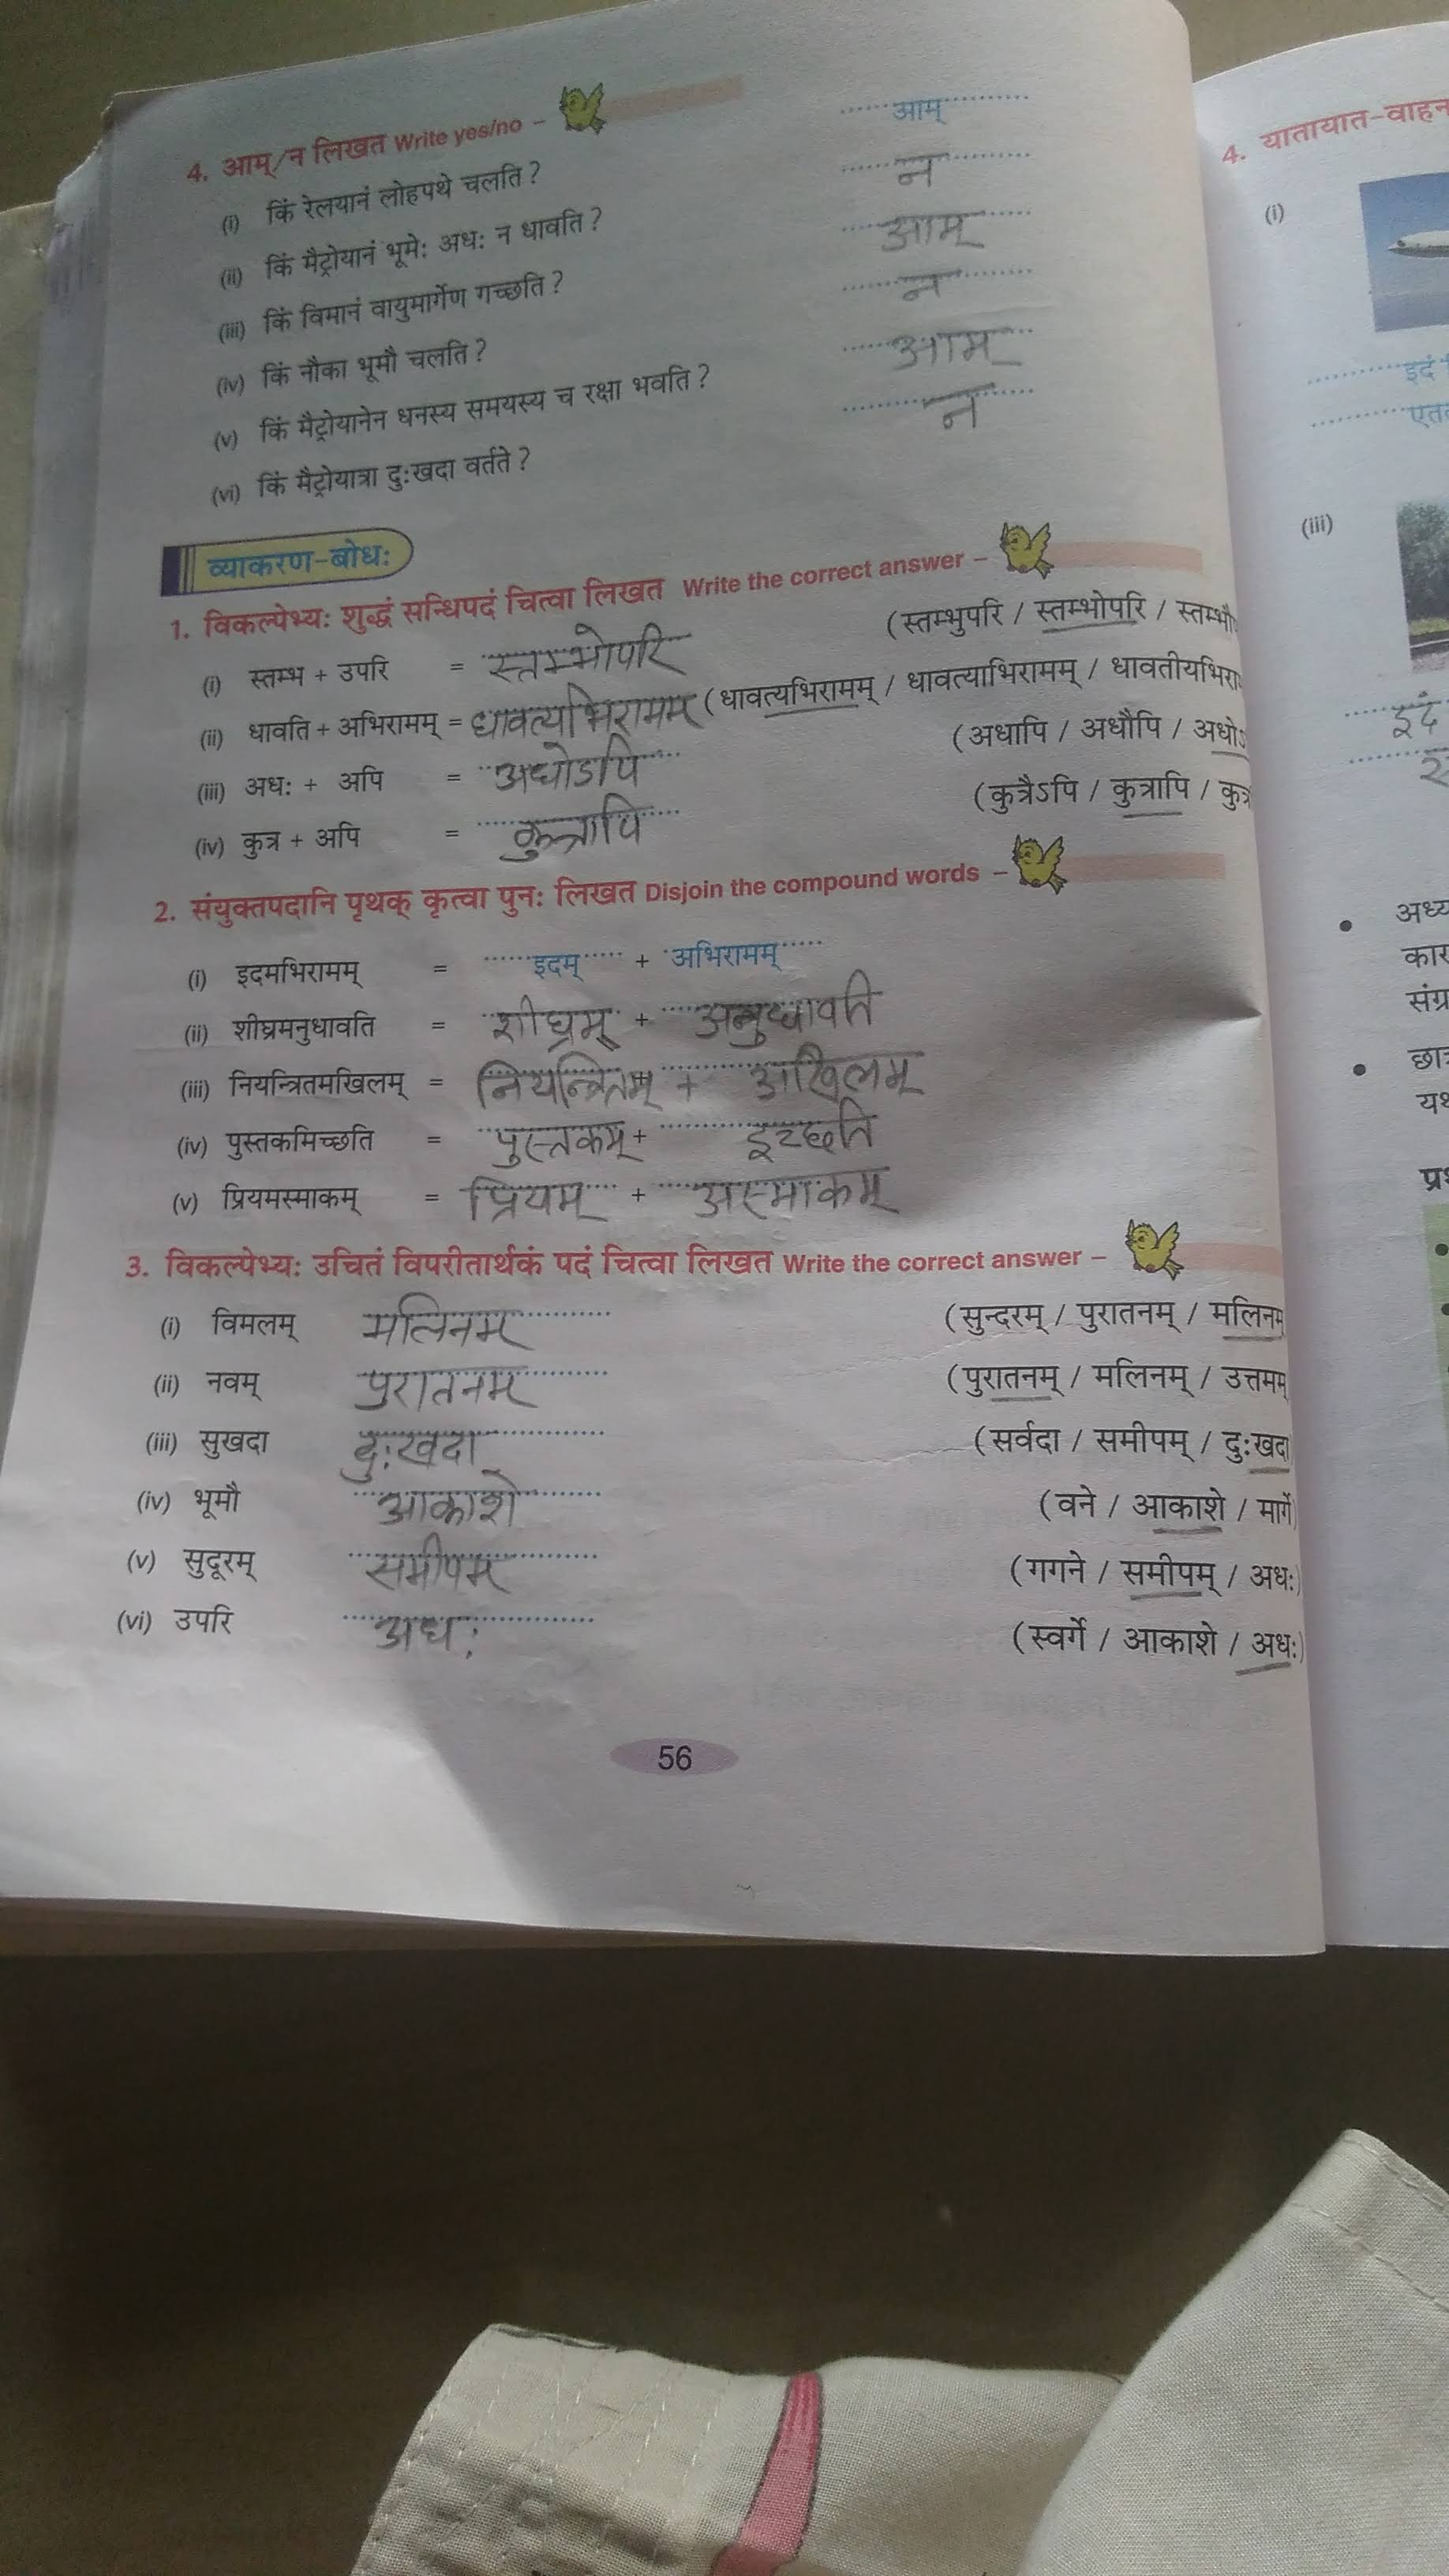 4. आम्/न लिखत Write yes/no –
(i) किं रेलयानं लोहपथे चलति ? आम्
(ii) किं मैट्रोयानं भूमेः अधः न धावति ? न
(iii) किं विमानं वायुमार्गेण गच्छति ? आम्
(iv) किं नौका भूमौ चलति ? न
(v) किं मैट्रोयानेन धनस्य समयस्य च रक्षा भवति ? आम्
(vi) किं मैट्रोयात्रा दुःखदा वर्तते ? न
व्याकरण-बोधः
1. विकल्पेभ्यः शुद्धं सन्धिपदं चित्वा लिखत Write the correct answer –
(i) स्तम्भ + उपरि = स्तम्भोपरि (स्तम्भुपरि / स्तम्भोपरि /
(ii) धावति + अभिरामम् = धावत्यभिरामम् (धावत्यभिरामम् / धावत्याभिरामम् /
(iii) अधः + अपि = अधोऽपि (अधापि / अधौपि /
(iv) कुत्र + अपि = कुत्रापि (कुत्रैऽपि / कुत्रापि /
2. संयुक्तपदानि पृथक् कृत्वा पुनः लिखत Disjoin the compound words –
(i) इदमभिरामम् = इदम् + अभिरामम्
(ii) शीघ्रमनुधावति = शीघ्रम् + अनुधावति
(iii) नियन्त्रितमखिलम् = नियन्त्रितम् + अखिलम्
(iv) पुस्तकमिच्छति = पुस्तकम् + इच्छति
(v) प्रियमस्माकम् = प्रियम् + अस्माकम्
3. विकल्पेभ्यः उचितं विपरीतार्थकं पदं चित्वा लिखत Write the correct answer –
(i) विमलम् मलिनम् (सुन्दरम् / पुरातनम् / मलिनम्
(ii) नवम् पुरातनम् (पुरातनम् / मलिनम् / उत्तमम्
(iii) सुखदा दुःखदा (सर्वदा / समीपम् / दुःखदा
(iv) भूमौ आकाशे (वने / आकाशे / मार्गे)
(v) सुदूरम् समीपम् (गगने / समीपम् / अधः)
(vi) उपरि अधः (स्वर्गे / आकाशे / अधः)
56
4. यातायात-वाहन
(i)
इदं
(iii)
इदं